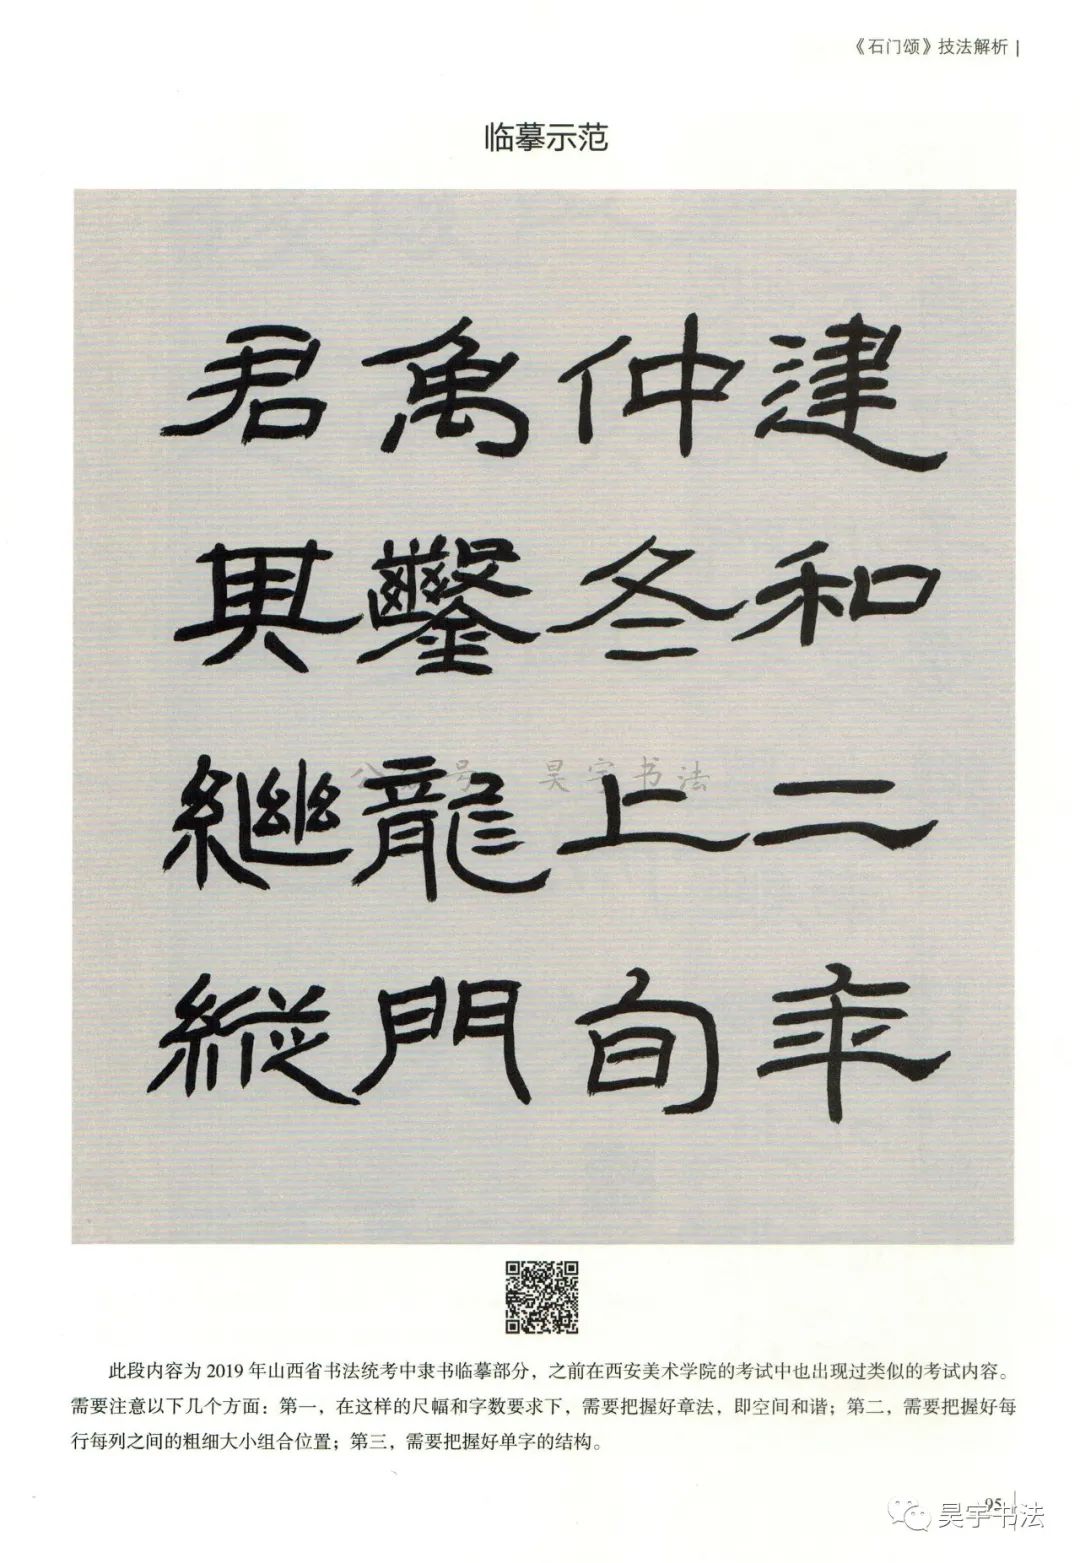 《石门颂》技法解析
临摹示范
建和二年
仲冬上旬
禹鑿龍門
君其繼縱
公众号 昊宇书法
此段内容为 2019 年山西省书法统考中隶书临摹部分，之前在西安美术学院的考试中也出现过类似的考试内容。
需要注意以下几个方面：第一，在这样的尺幅和字数要求下，需要把握好章法，即空间和谐；第二，需要把握好每
行每列之间的粗细大小组合位置；第三，需要把握好单字的结构。
95
昊宇书法